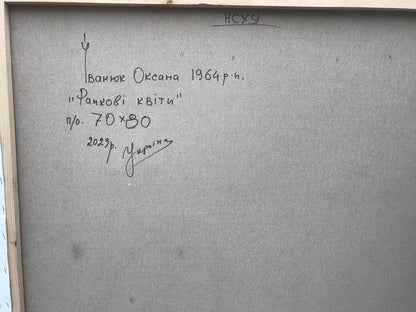 НСХУ
Іванюк Оксана 1964 р.н.
"Ранкові квіти"
п/о. 70 x 80
2023р. Україна